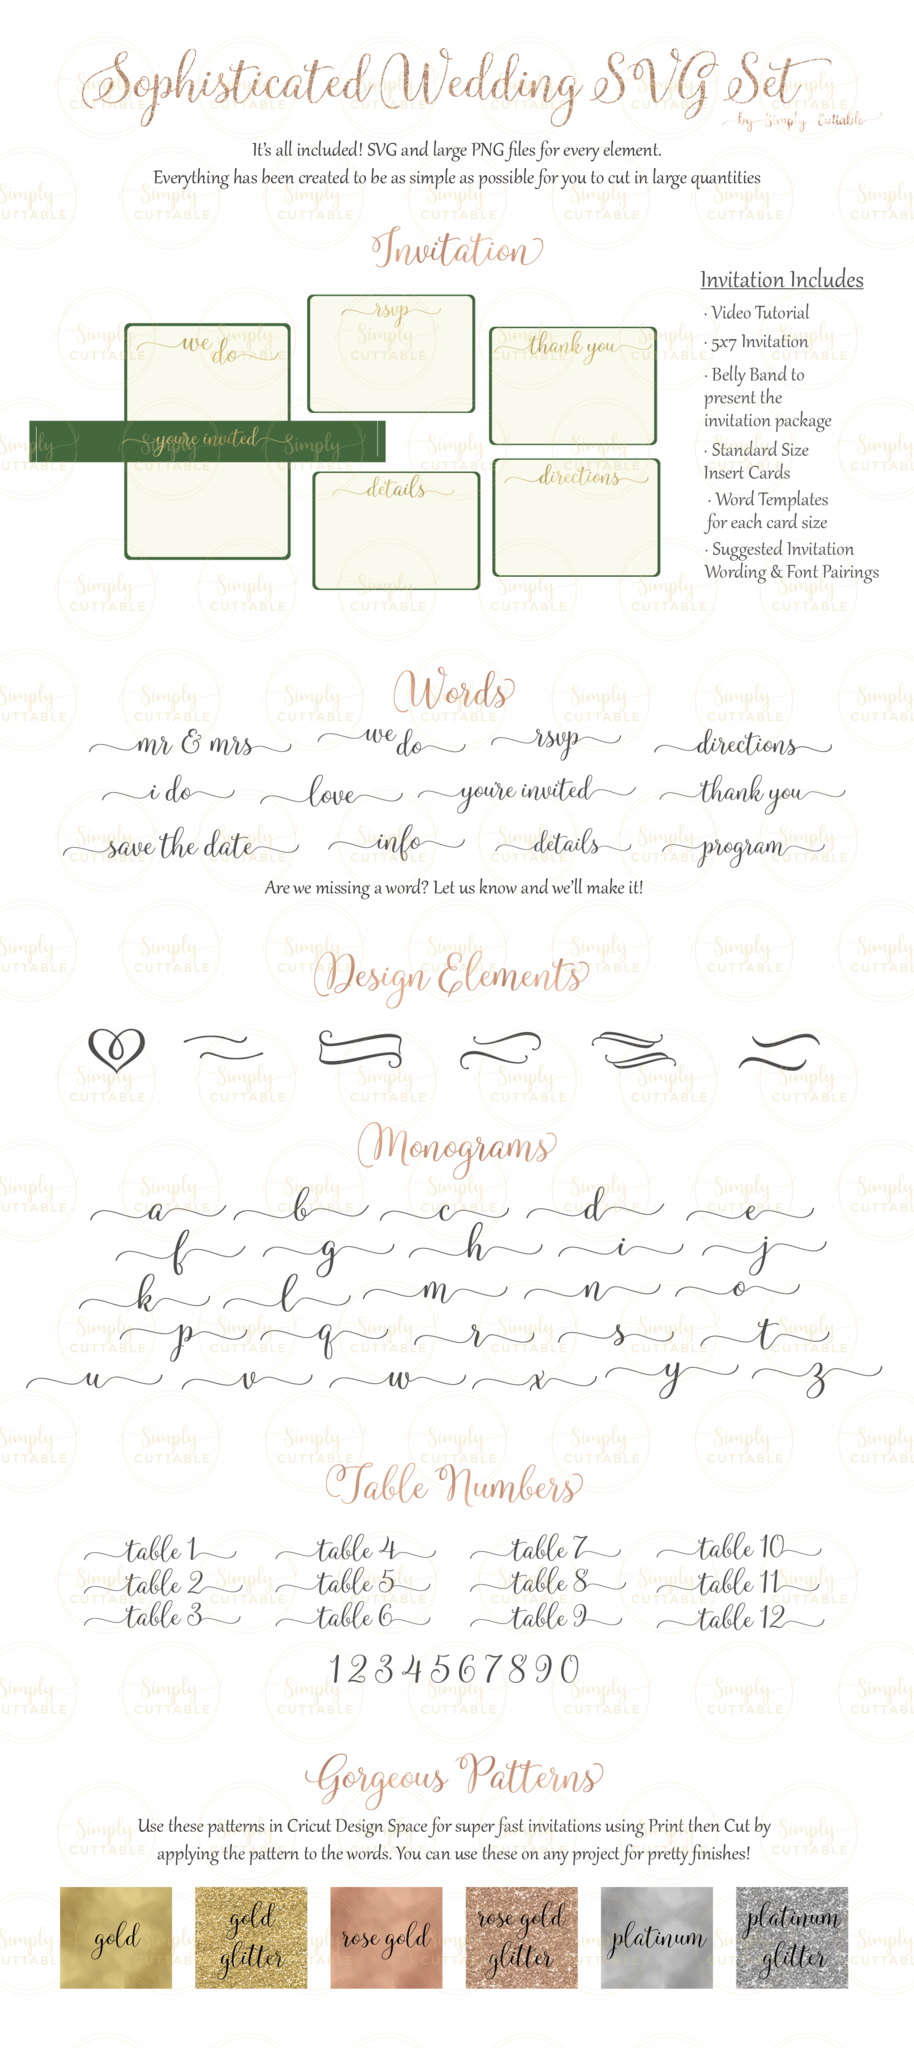 Sophisticated Wedding SVG Set
by Simply Cuttable
It's all included! SVG and large PNG files for every element.
Everything has been created to be as simple as possible for you to cut in large quantities
Invitation
we
do
you're invited
rsvp
thank you
details
directions
Invitation Includes
· Video Tutorial
· 5x7 Invitation
· Belly Band to
present the
invitation package
· Standard Size
Insert Cards
· Word Templates
for each card size
· Suggested Invitation
Wording & Font Pairings
Words
mr & mrs
we
do
rsvp
directions
i do
love
youre invited
thank you
save the date
info
details
program
Are we missing a word? Let us know and we'll make it!
Design Elements
Monograms
a b c d e
f g h i j
k l m n o
p q r s t
u v w x y z
Table Numbers
table 1 table 4 table 7 table 10
table 2 table 5 table 8 table 11
table 3 table 6 table 9 table 12
1 2 3 4 5 6 7 8 9 0
Gorgeous Patterns
Use these patterns in Cricut Design Space for super fast invitations using Print then Cut by
applying the pattern to the words. You can use these on any project for pretty finishes!
gold
gold
glitter
rose gold
rose gold
glitter
platinum
platinum
glitter
Simply
CUTTABLE